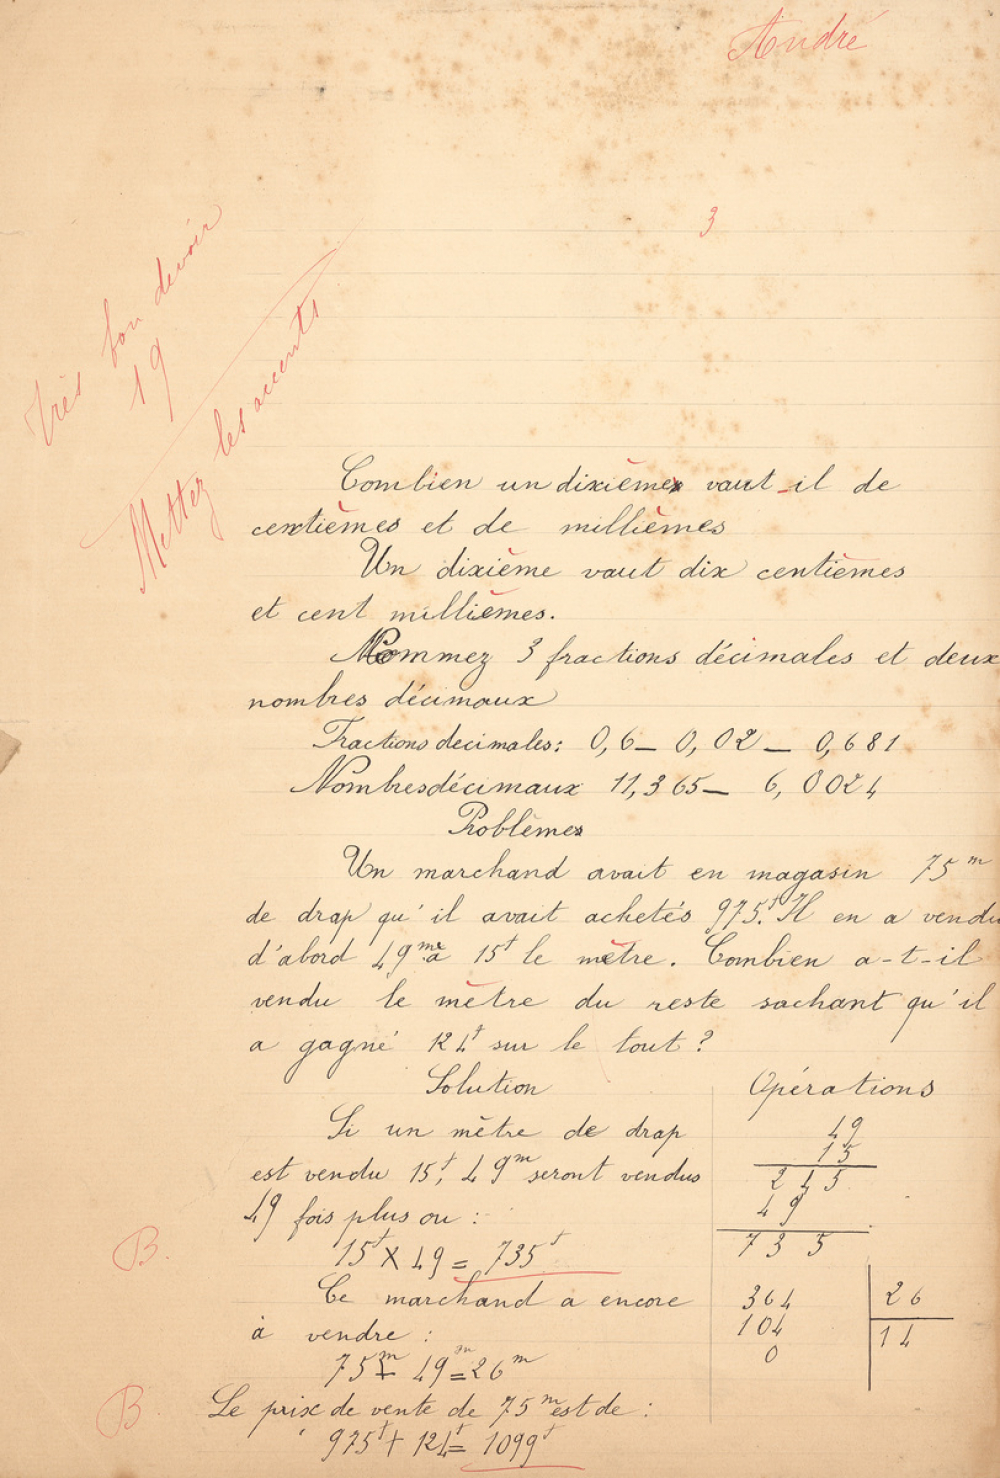 André
3
Très bon devoir
19
Mettez les accents
Combien un dixième vaut-il de
centièmes et de millièmes
Un dixième vaut dix centièmes
et cent millièmes.
Nommez 3 fractions décimales et deux
nombres décimaux
Fractions decimales: 0,6_ 0,02_ 0,681
Nombres décimaux 11,365_ 6,8024
Problèmes
Un marchand avait en magasin 75 m
de drap qu'il avait achetés 975f. Il en a vendu
d'abord 49 m à 15f le mètre. Combien a-t-il
vendu le mètre du reste sachant qu'il
a gagné 124f sur le tout?
Solution
Si un mètre de drap
est vendu 15f, 49m seront vendus
49 fois plus ou :
15f X 49 = 735f
B.
Ce marchand a encore
à vendre :
75m - 49m = 26m
Le prix de vente de 75m est de :
B
975f + 124f = 1099f
Opérations
49
15
245
49
735
364 26
104 14
0